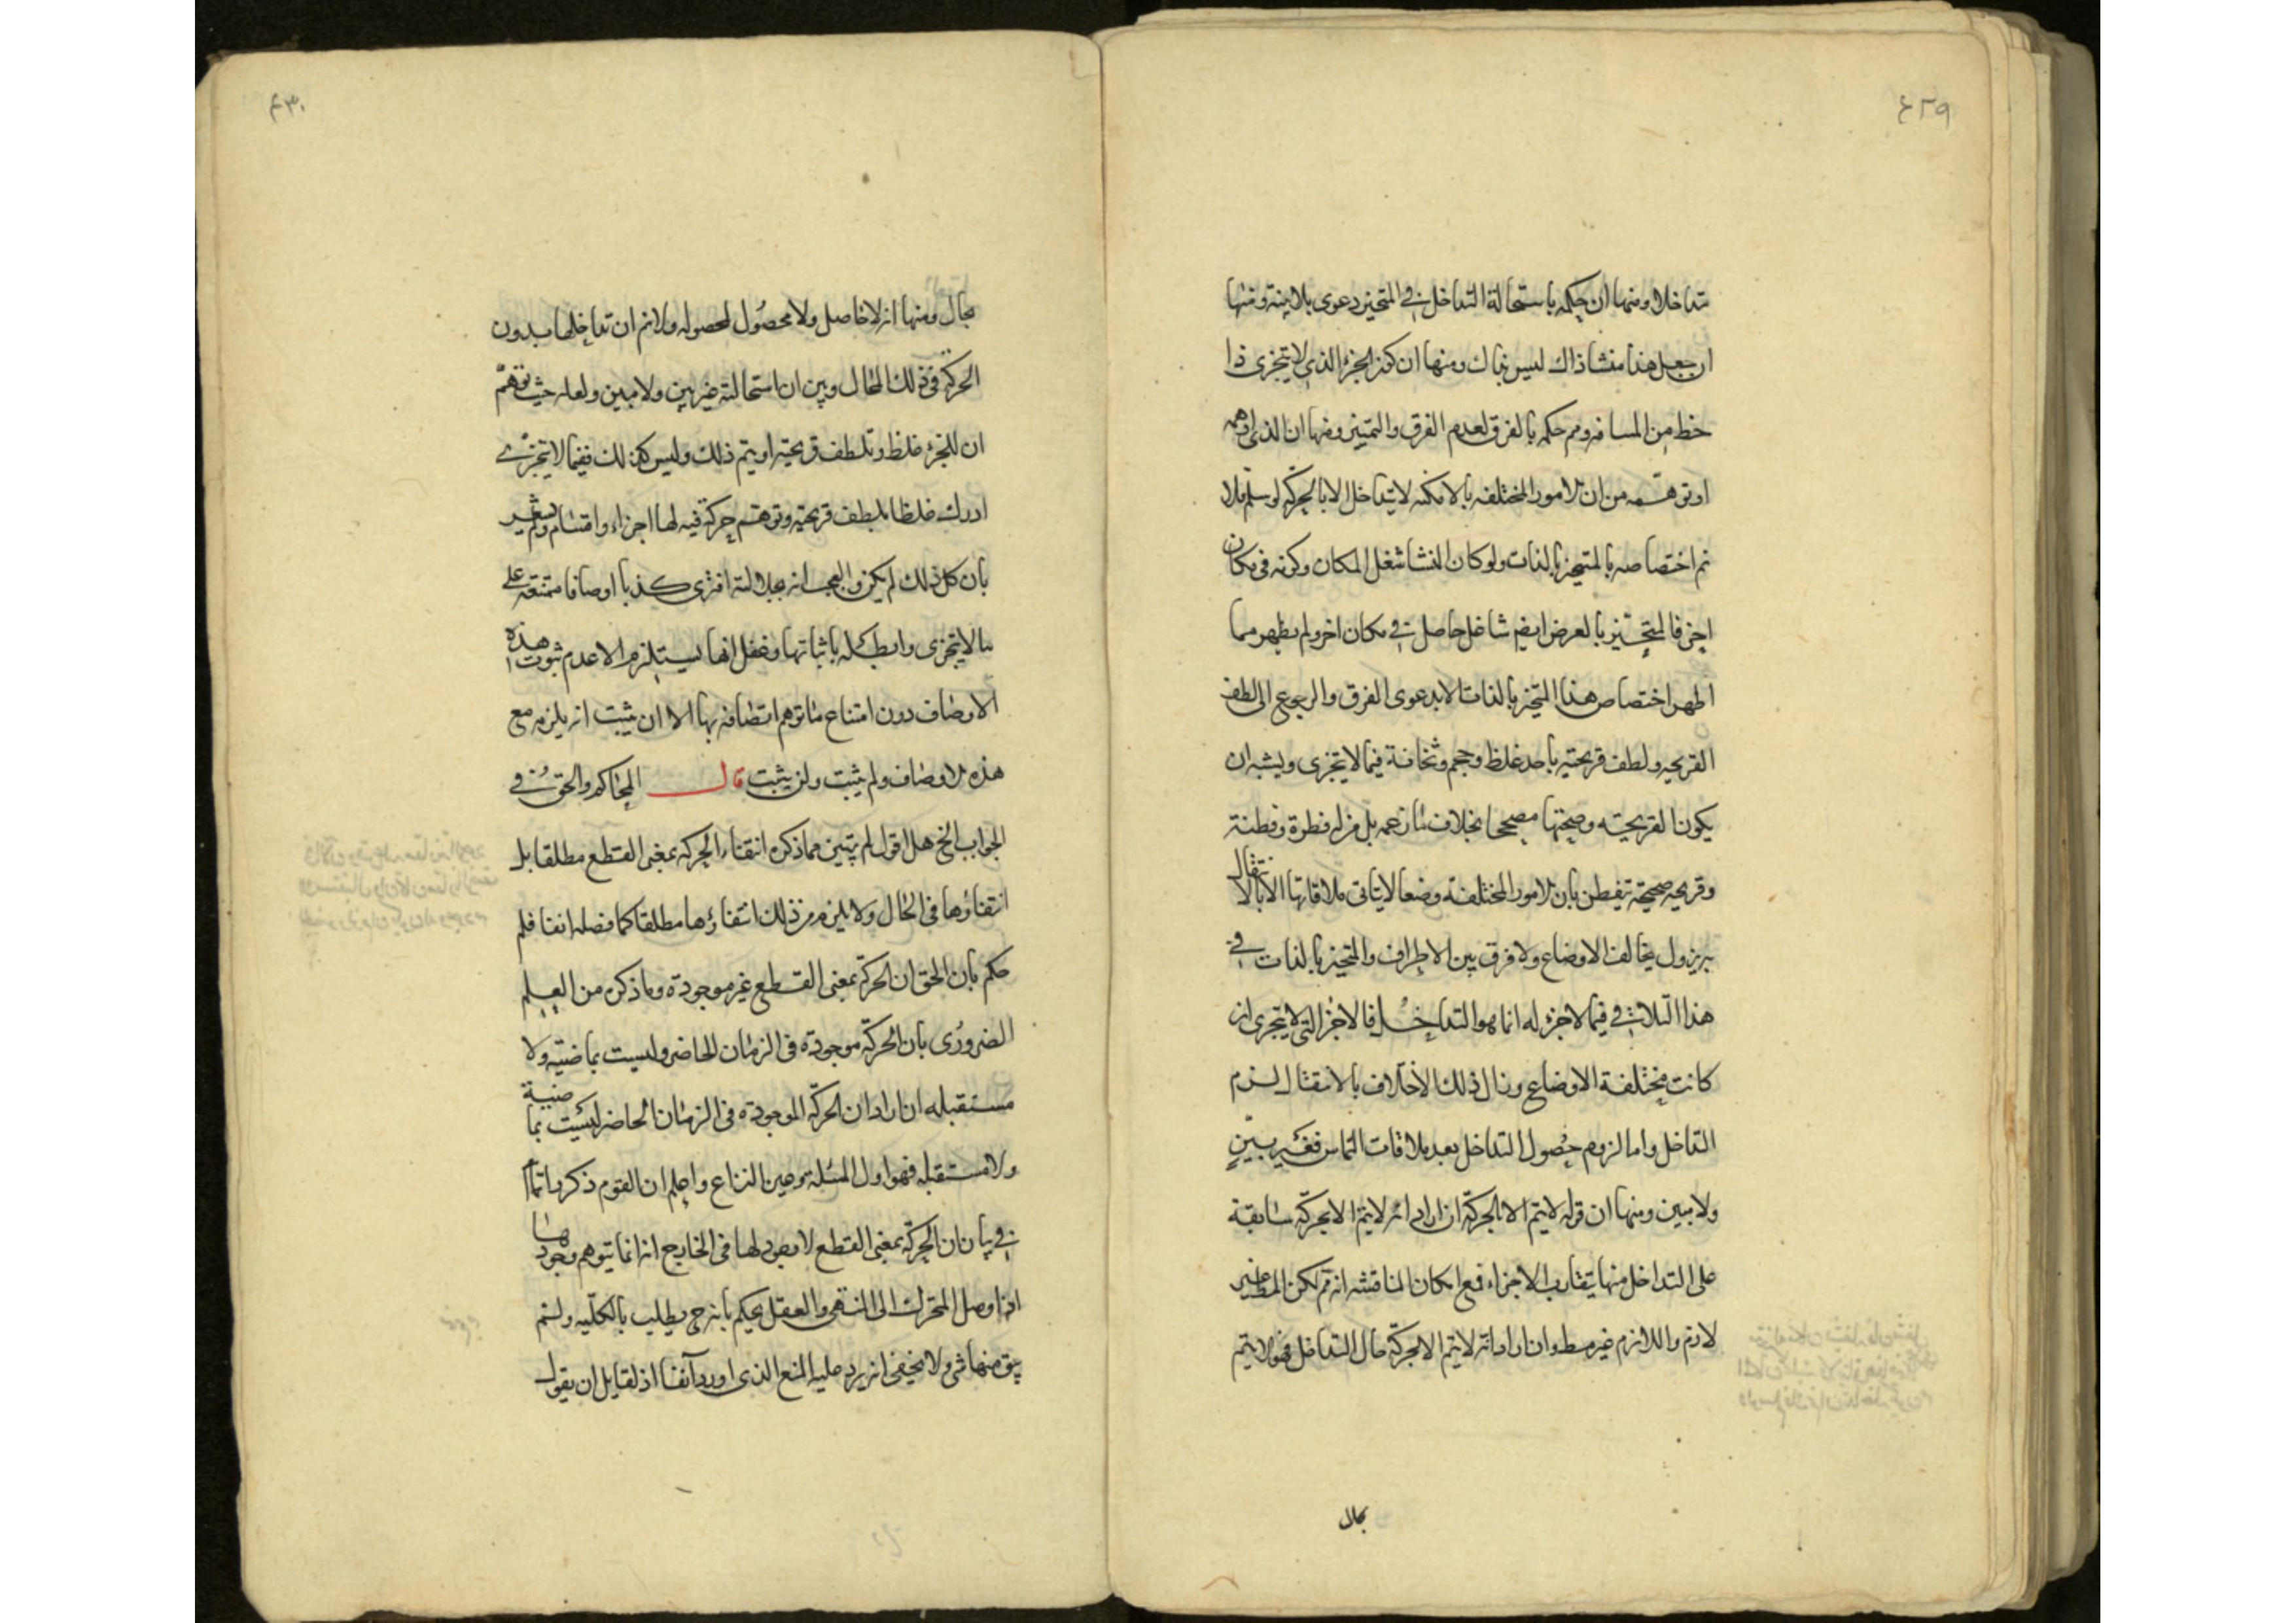 ٤٢٩
متداخلا ومنها ان حكمه باستحالة التداخل في المتحيز دعوى بلا بينة ومنها
ان جعل هذا منشا ذاك ليس بذاك ومنها ان كون الجزء الذي لا يتجزى ذا
حظ من المسافه ومم حكمه بالفرق لعدم الفرق والتميز ومنها ان الذي اوهمه
او توهمه من ان الامور المختلفه بالامكنه لا يتداخل الا بالحركة لو سلم فلا
نم اختصاصه بالمتحيز بالذات ولو كان المنشا شغل المكان وكونه في مكان
اخر فالمتحيز بالعرض ايضا شاغل حاصل في مكان اخر ولم يظهر مما
اظهر اختصاص هذا المتحيز بالذات الا بدعوى الفرق والرجوع الى لطف
القريحه ولطف قريحته باحد غلظ وحجم وثخانة فيما لا يتجزى ويشبه ان
يكون لقريحته وصحتها مصححا بخلاف ما زعمه بل من له فطرة وفطنة
وقريحه صحيحة تيفطن بان الامور المختلفة وضعا لا يتاتى ملاقاتها الا بالانتقال
يزول تخالف الاوضاع ولا فرق بين الاطراف والمتحيز بالذات في
هذا التلاقي فيما لا جزء له انما هو التداخل فالاجزا التي لا يتجزى ان
كانت مختلفة الاوضاع وزال ذلك الاختلاف بالانتقال لزم
التداخل واما لزوم حصول التداخل بعد ملاقات التماس فغير بين
ولا مبين ومنها ان قوله لا يتم الا بالحركة ان اراد انه لا يتم الا بحركة سابقة
على التداخل منها يتقارب الاجزاء فمع امكان المناقشه انه تم لكن المط غير
لازم واللازم غير مط وان اراد انه لا يتم الا بحركة حال التداخل فهو لا يتم
بحال
٤٣٠
بحال ومنها انه لا حاصل ولا محصول لمحصوله ولا نم ان تداخلها بدون
الحركة في ذلك الحال وبين ان استحالته غير بين ولا مبين ولعله حيث توهم
ان للجزء غلظ وتلطف قريحته او يتم ذلك وليس كذلك ففيما لا يتجزى
ادرك غلظا بلطف قريحته وتوهم حركة فيه لها اجزاء واقسام ولم يشعر
بان كل ذلك لم يكن والعجب انه افترى كذبا اوصافا ممتنعه على
ما لا يتجزى وابطله باثباتها وغفل انها يستلزم الا عدم ثبوت هذه
الاوصاف دون امتناع ما توهم اتصافه بها الا ان يثبت انه يلزمه مع
هذه الاوصاف ولم يثبت ولن يثبت قال المحاكم والحق في
الجواب الخ هل اقول لم يتبين مما ذكره انتفاء الحركه بمعنى القطع مطلقا بل
انتفاؤها في الحال ولا يلزم من ذلك انتفاؤها مطلقا كما فصله انفا فلم
حكم بان الحق ان الحركة بمعنى القطع غير موجودة وما ذكره من العلم
الضروري بان الحركة موجوده في الزمان الحاضر وليست بماضيه ولا
مستقبله ان اراد ان الحركة الموجوده في الزمان الحاضر ليست بماضية
ولا مستقبله فهو اول المسئلة وعين النزاع واعلم ان القوم ذكروا
في بيان ان الحركة بمعنى القطع لا وجود لها في الخارج انه انما يتوهم وجودها
اذا وصل المتحرك الى المنتهى والعقل يحكم بانه ح يطلب بالكليه ولم
يبق منها شئ ولا يخفى انه يرد عليه المنع الذي اورد آنفا اذ لقايل ان يقول